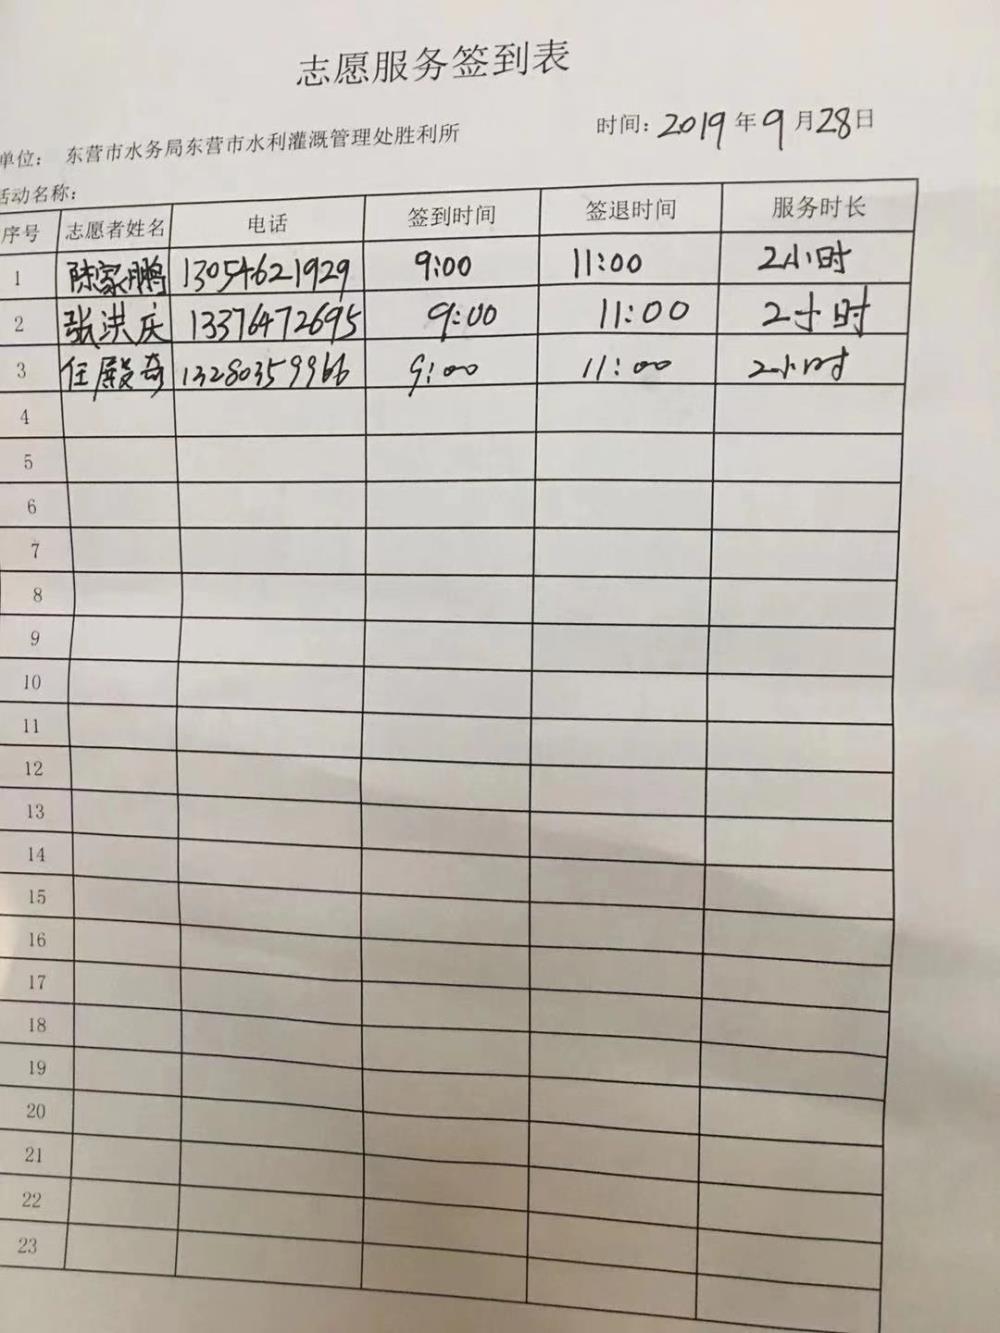 志愿服务签到表
单位： 东营市水务局东营市水利灌溉管理处胜利所 时间：2019年9月28日
活动名称：
序号 志愿者姓名 电话 签到时间 签退时间 服务时长
1 陈家鹏 13054621929 9:00 11:00 2小时
2 张洪庆 13376472695 9:00 11:00 2小时
3 任殿奇 13280359966 9:00 11:00 2小时
4
5
6
7
8
9
10
11
12
13
14
15
16
17
18
19
20
21
22
23